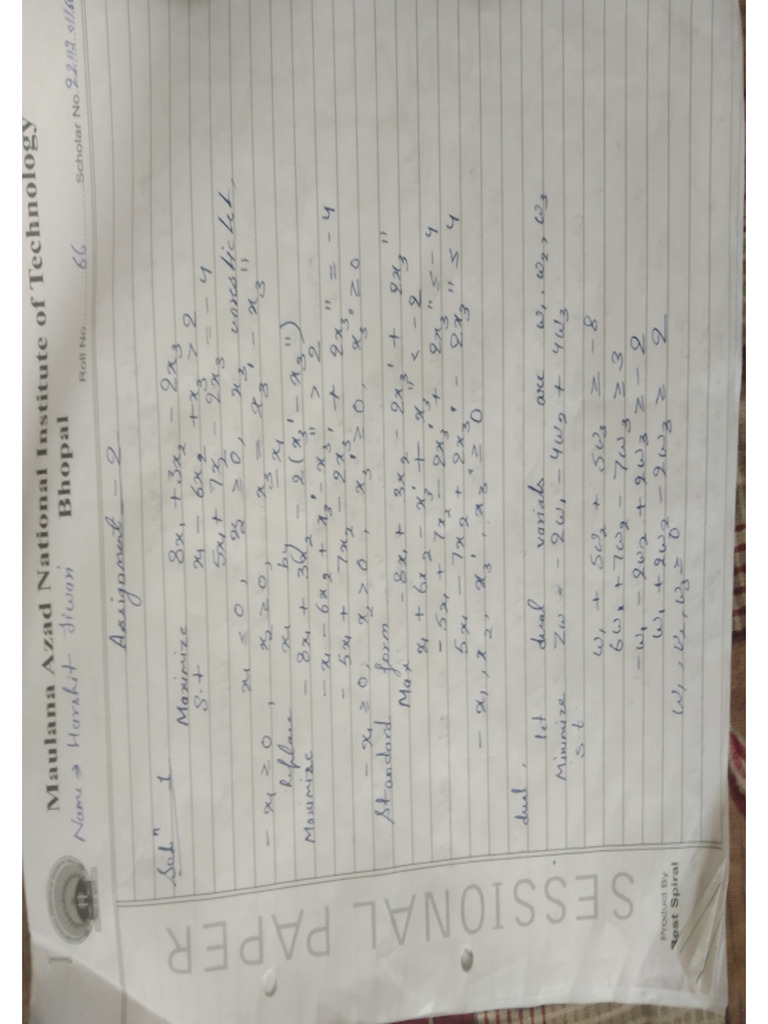 Maulana Azad National Institute of Technology
Bhopal
Name → Harshit Jiwani
Roll No. 66 Scholar No.
Assignment - 2
Solⁿ 1
Maximize 8x₁ + 3x₂ - 2x₃
S.t x₁ - 6x₂ + x₃ > 2
5x₁ + 7x₂ - 2x₃ = -4
x₁ ≤ 0, x₂ ≥ 0, x₃ unrestricted
- x₁ ≥ 0, x₂ ≥ 0, x₃ = x₃' - x₃"
Replace x₁ by - x₁
Maximize - 8x₁ + 3x₂ - 2(x₃' - x₃")
- x₁ - 6x₂ + x₃' - x₃" > 2
- 5x₁ + 7x₂ - 2x₃' + 2x₃" = -4
- x₁ ≥ 0, x₂ > 0, x₃' ≥ 0, x₃" ≥ 0
Standard form
Max -8x₁ + 3x₂ - 2x₃' + 2x₃"
x₁ + 6x₂ - x₃' + x₃" < -2
-5x₁ + 7x₂ - 2x₃' + 2x₃" ≤ -4
5x₁ - 7x₂ + 2x₃' - 2x₃" ≤ 4
- x₁, x₂, x₃', x₃" ≥ 0
dual,
let dual variabls are w₁, w₂, w₃
Minimize Zw = - 2w₁ - 4w₂ + 4w₃
S.t
w₁ + 5w₂ + 5w₃ ≥ -8
6w₁ + 7w₂ - 7w₃ ≥ 3
-w₁ - 2w₂ + 2w₃ ≥ -2
w₁ + 2w₂ - 2w₃ ≥ 2
w₁, w₂, w₃ ≥ 0
SESSIONAL PAPER
Product By
Best Spiral